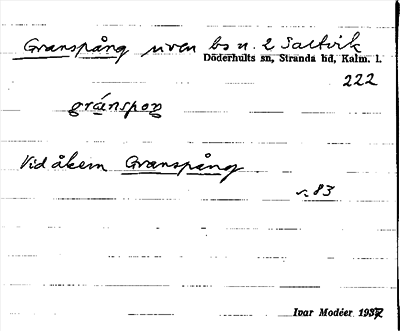 Granspång uren bs n. 2 Saltvik
Döderhults sn, Stranda hd, Kalm. l.
222
gránspoŋ
Vid åkern Granspång
s. 83
Ivar Modéer 1937